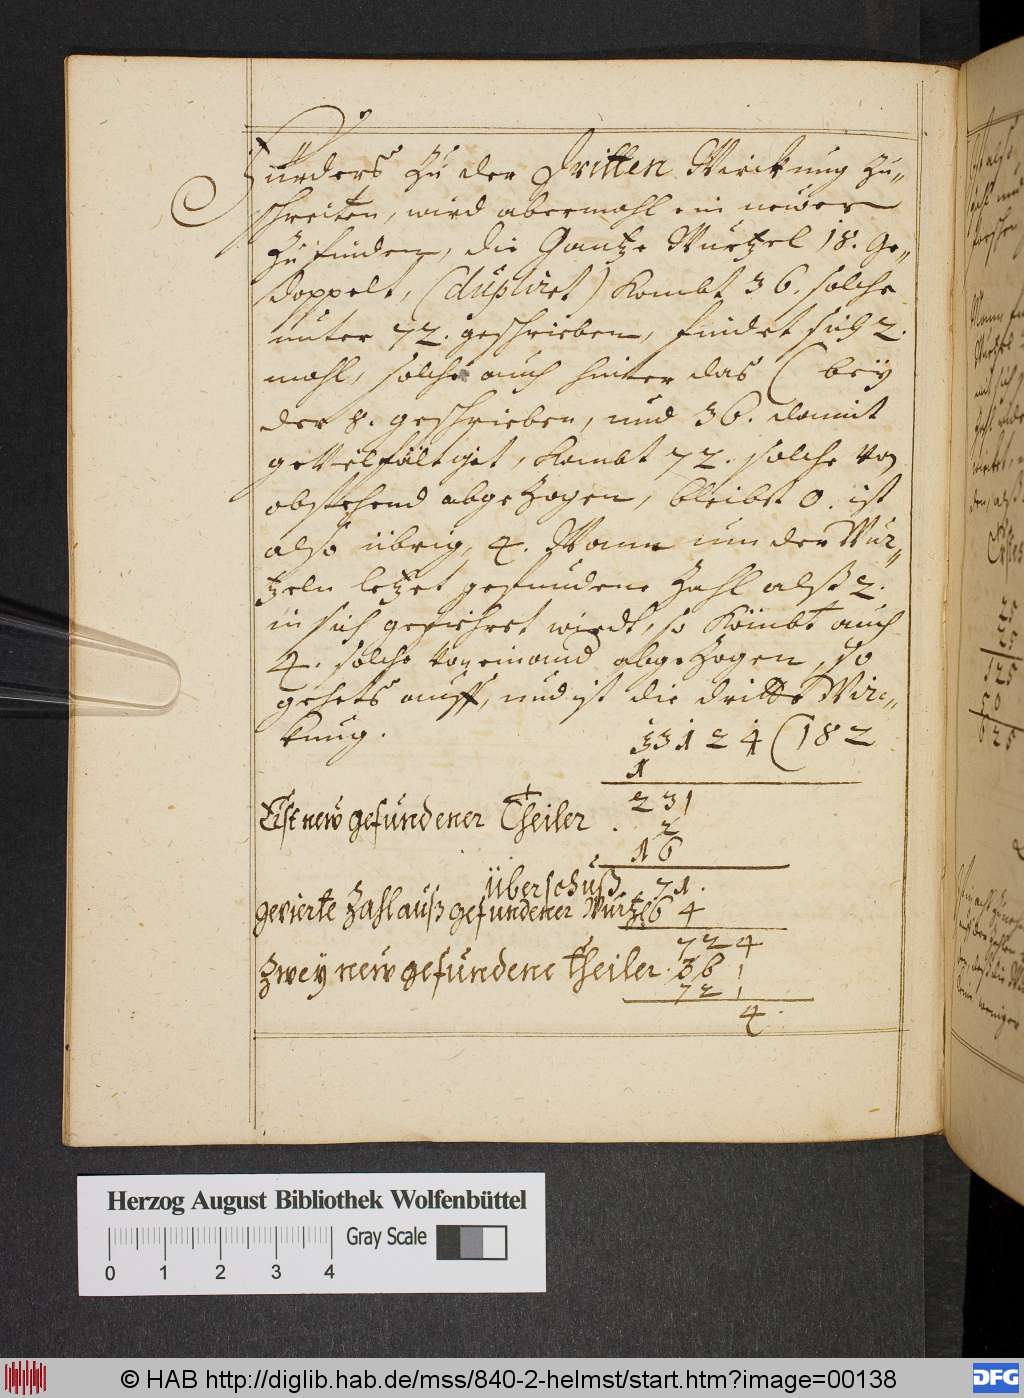 Fürders zu der dritten Wirckung zu„
schreiten, wird abermahl ein newer
zu finden, die Gantze Wurtzel 18. Ge„
doppelt, (dupliret) kombt 36. solche
unter 72. geschrieben, findet sich 2.
mahl, solche auch hinter das ( beÿ
der 8. geschrieben, und 36. damit
gevielfältiget, kombt 72. solche von
obstehend abgezogen, bleibet 0. ist
also übrig, 4. Wann nun der Wur„
tzeln letzet gefundene Zahl alß 2.
in sich geführet wirdt, so kömbt auch
4. solche von einand abgezogen, so
gehets auff, und ist die dritte Wirc„
kung.
33124 (182
1
231
Erst new gefundener Theiler . 2
16
Überschuß 71.
gevierte Zahl auß gefundener Wurtzel 64
724
Zweÿ new gefundene Theiler. 36
72
4.
Herzog August Bibliothek Wolfenbüttel
Gray Scale
0 1 2 3 4
© HAB http://diglib.hab.de/mss/840-2-helmst/start.htm?image=00138
DFG